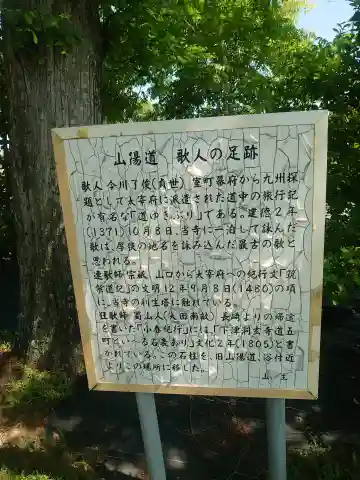 山陽道 歌人の足跡
歌人 今川了俊(貞世) 室町幕府から九州探
題として太宰府に派遣された道中の旅行記
が有名な「道ゆきぶり」である。建徳2年
(1371)10月8日、当寺に一泊して詠んだ
歌は、厚狭の地名を詠み込んだ最古の歌と
思われる。
連歌師 宗祇 山口から太宰府への紀行文「筑
紫道記」の文明12年9月8日(1480)の項
に、当寺の利生塔に触れている。
狂歌師 蜀山人(大田南畝) 長崎よりの帰途
を書いた「小春紀行」には、「下津洞玄寺道五
町といへる石表あり」文化2年(1805)と書
かれている。この石柱を、旧山陽道、谷付近
よりこの場所に移した。
山主